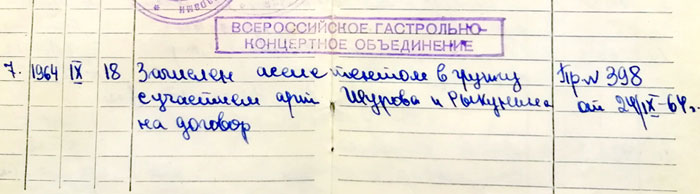 ВСЕРОССИЙСКОЕ ГАСТРОЛЬНО-
КОНЦЕРТНОЕ ОБЪЕДИНЕНИЕ
7. 1964 IX 18 Зачислен ассистентом в группу Пр N 398
с участием арт Шурова и Рыкунина от 24/IX-64 г.
на договор